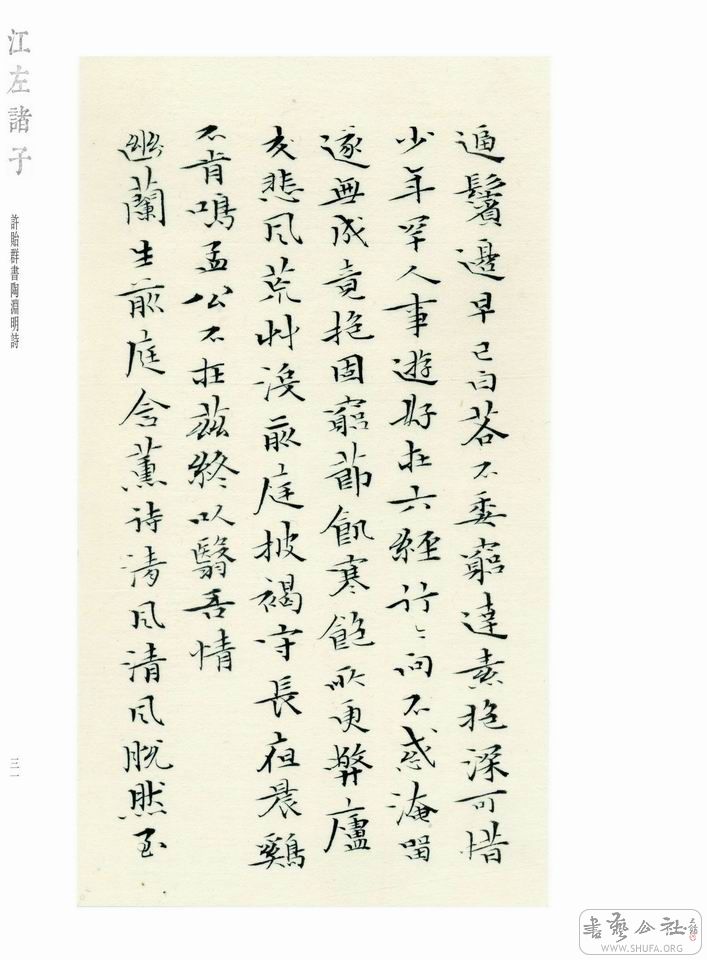 逼鬢邊早已白若不委窮達素抱深可惜
少年罕人事遊好在六經行〻向不惑淹留
遂無成竟抱固窮節飢寒飽所更弊廬
交悲風荒艸沒前庭披褐守長夜晨鷄
不肯鳴孟公不在茲終以翳吾情
幽蘭生前庭含薰待清風清風脫然至
江左諸子
許貽群書陶淵明詩
三一
書藝公社
WWW.SHUFA.ORG